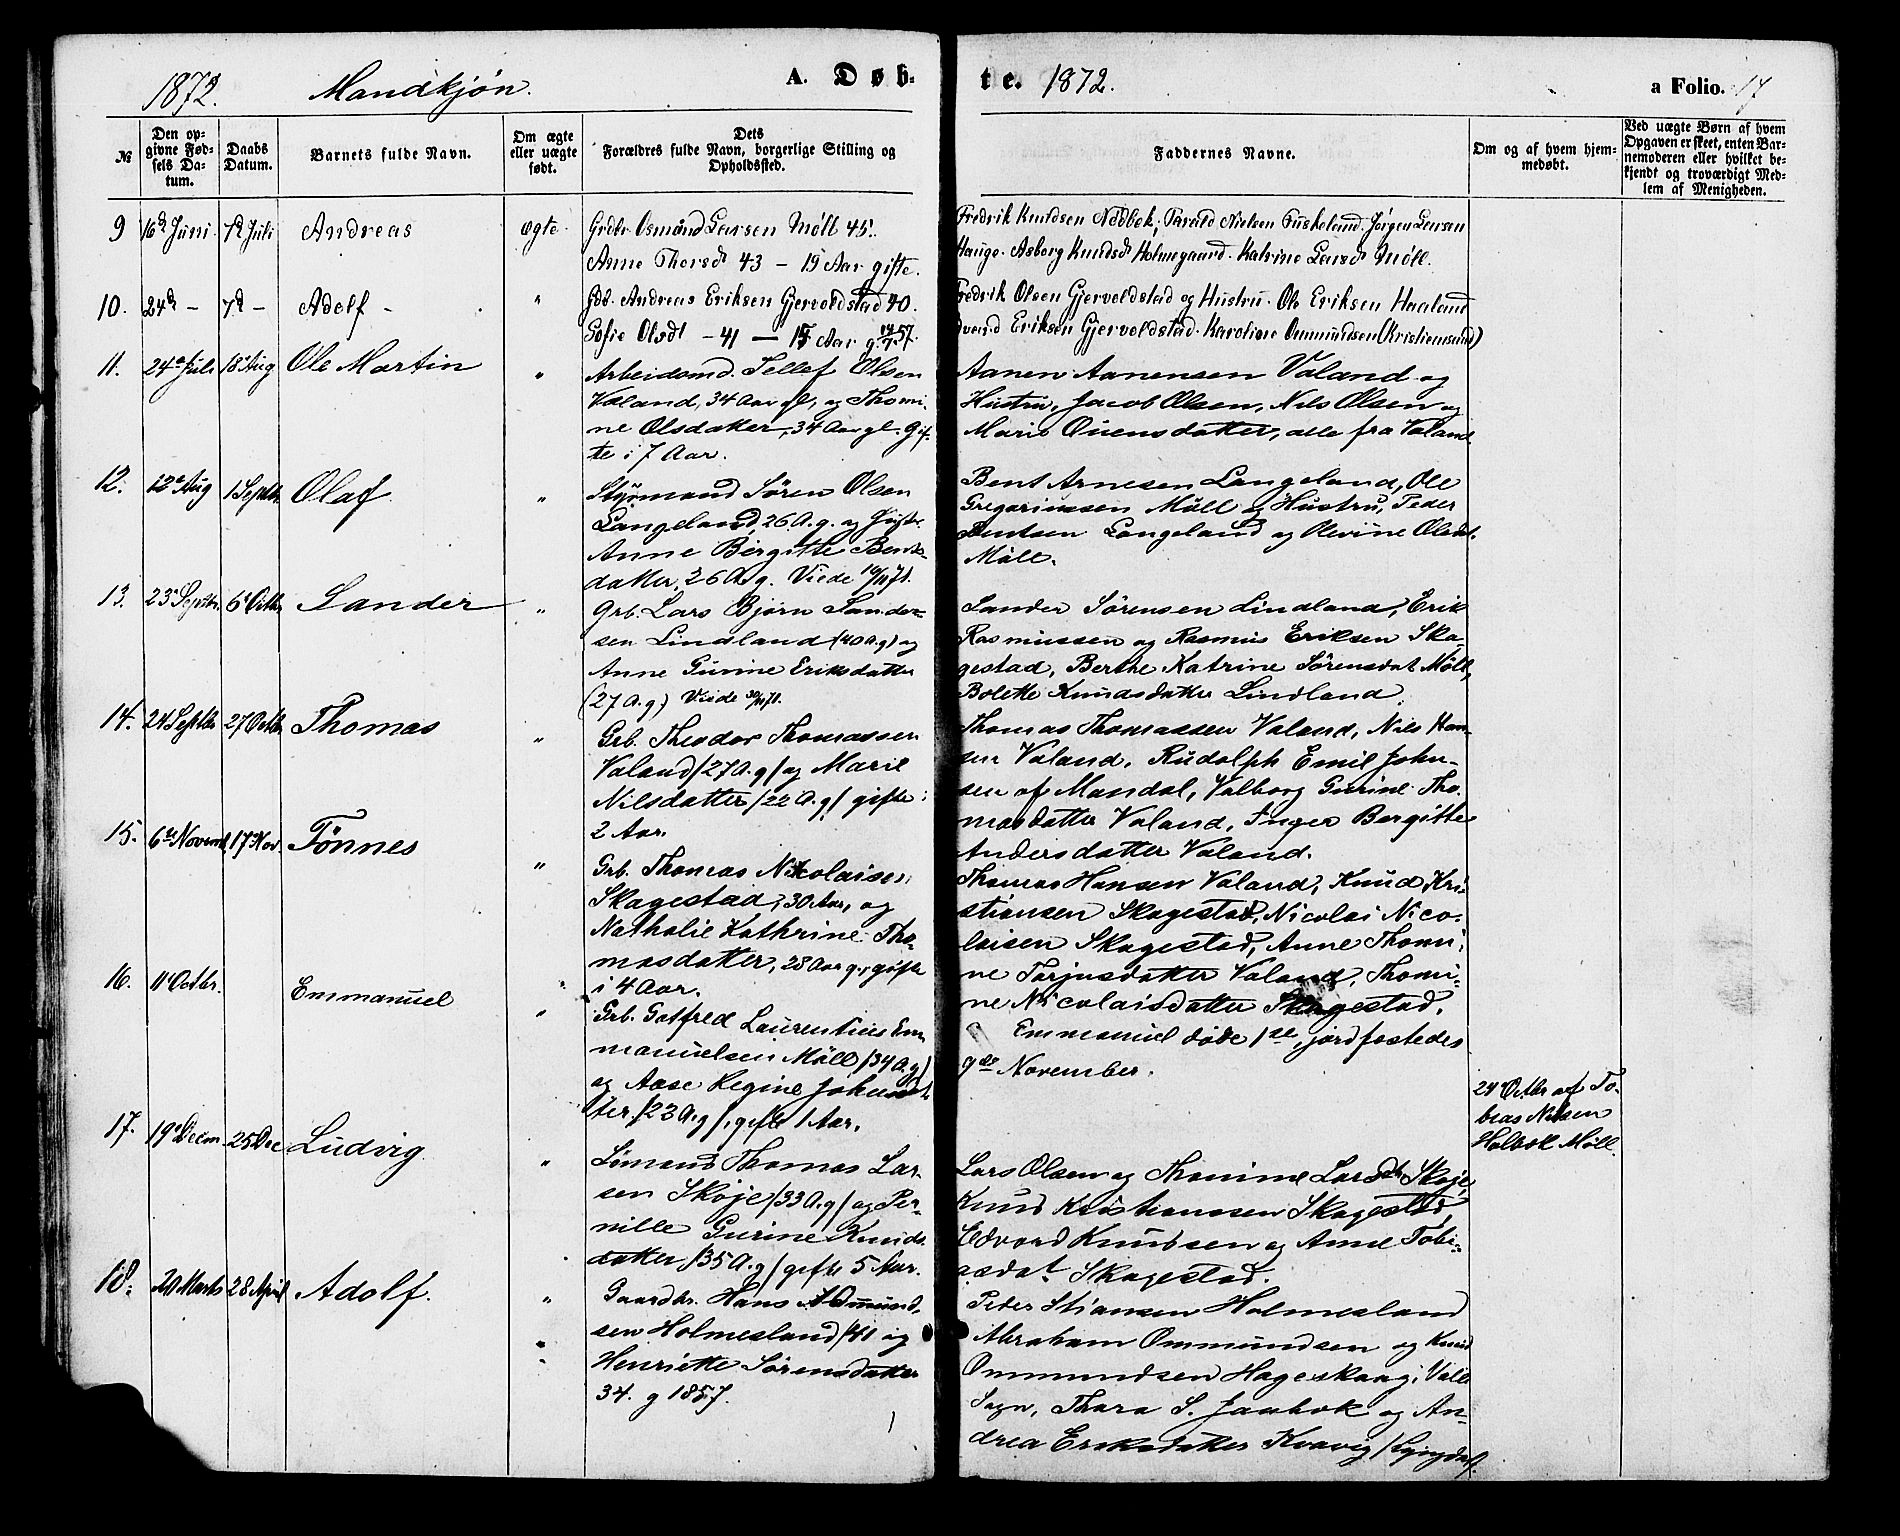 1872. Mandkjøn. A. Døb-
te. 1872. a Folio. 17
№ Den op-givne Fød-sels Da-tum. Daabs Datum. Barnets fulde Navn. Om ægte eller uægte født. Dets Forældres fulde Navn, borgerlige Stilling og Opholdssted. Faddernes Navne. Om og af hvem hjem-medøbt. Ved uægte Børn af hvem Opgaven er skeet, enten Bar-nemoderen eller hvilket be-kjendt og troværdigt Med-lem af Menigheden.
9 16d Juni 7d Juli Andreas ægte Grdbr. Osmund Larsen Møll 45.
Anne Thorsdt 43 – 19 Aar gifte.
Fredrik Knudsen Nødbek, Tarald Nielsen Fuskeland. Jørgen Larsen
Hauge. Asborg Knudsdt Holmegaard. Katrine Larsdt Møll.
10. 24d – 7d – Adolf – " Gds. Andreas Eriksen Gjervoldstad 40.
Sofie Olsdt – 41 – 15 Aar g.
Fredrik Olsen Gjervoldstad og Hustru. Ole Eriksen Haaland
Edvard Eriksen Gjervoldstad. Karoline Ommundsen (Kristiansund)
11. 24de Juli 18 Aug Ole Martin " Arbeidsmd. Tellef Olsen
Valand, 34 Aar gl, og Thomi-
ne Olsdatter, 34 Aar gl. Gif-
te i 7 Aar.
Aanen Aanensen Valand og
Hustru, Jacob Olsen, Nils Olsen og
Maris Ouensdatter, alle fra Valand
12. 12te Aug 1 Septb. Olaf " Styrmand Søren Olsen
Langeland, 26 A. g. og Hustr.
Anne Birgitte Bents-
datter, 26 A. g. Viede 10/11 71.
Bent Arnesen Langeland, Ole
Gregoriussen Møll og Hustru, Peder
Bentsen Langeland og Olevine Olsdt.
Møll.
13. 23 Septbr. 6 Octbr Sander " Grb. Lars Bjørn Sander-
sen Lindland (40 A. g) og
Anne Gurine Eriksdatter
(27 A. g) Viede 30/11 71.
Sander Sørensen Lindland, Erik
Rasmussen og Rasmus Eriksen Ska-
gestad, Berthe Katrine Sørensdat Møll,
Bolette Knudsdatter Lindland.
14. 24 Septbr 27 Octbr Thomas " Grb. Theodor Thomassen
Valand /27 A. g/ og Marie
Nilsdatter /22 A. g/ gifte i
2 Aar.
Thomas Thomassen Valand, Nils Han-
sen Valand, Rudolph Emil John-
sen af Mandal, Valborg Gurine Tho-
masdatter Valand, Inger Bergitte
Andersdatter Valand.
15. 6te Novemb. 17 Nov. Tønnes " Grb. Thomas Nikolaisen
Skagestad, 30 Aar, og
Nathalie Kathrine Tho-
masdatter, 28 Aar g., gifte
i 4 Aar.
Thomas Hansen Valand, Knud Kri-
stiansen Skagestad, Nicolai Nico-
laisen Skagestad, Anne Thomi-
ne Tarjusdatter Valand, Thomi-
ne Nicolaisdatter Skagestad.
16. 11 Octbr. Emmanuel " Grb. Gotfred Laurentius Em
manuelsen Møll /34 A. g/
og Aase Regine Johnsdat
ter /23 A. g/, gifte 1 Aar.
Emmanuel døde 1ste, jordfæstedes
9de November.
24 Octbr af To-
bias Nilsen
Holbæk Møll.
17. 19 Decm. 25 Dec Ludvig " Sømand Thomas Lar-
sen Skøje /33 A. g/ og Per-
nille Gurine Knuds-
datter, /35 A. g/ gifte 5 Aar.
Lars Olsen og Thomine Larsdt Skøje,
Knud Kristianssen Skagestad,
Edvard Knudsen og Anne Tobi-
asdat Skagestad.
18. 20 Marts 28 April Adolf. " Gaardbr. Hans Ommund-
sen Holmesland /41 og
Henriette Sørensdatter
34. g 1857.
Peder Stiansen Holmesland
Abraham Ommundsen og Knud
Ommundsen Hageskaag i Valle
Sogn, Thara S. Jaabæk og An-
drea Eriksdatter Kvavig /Lyngdal/.